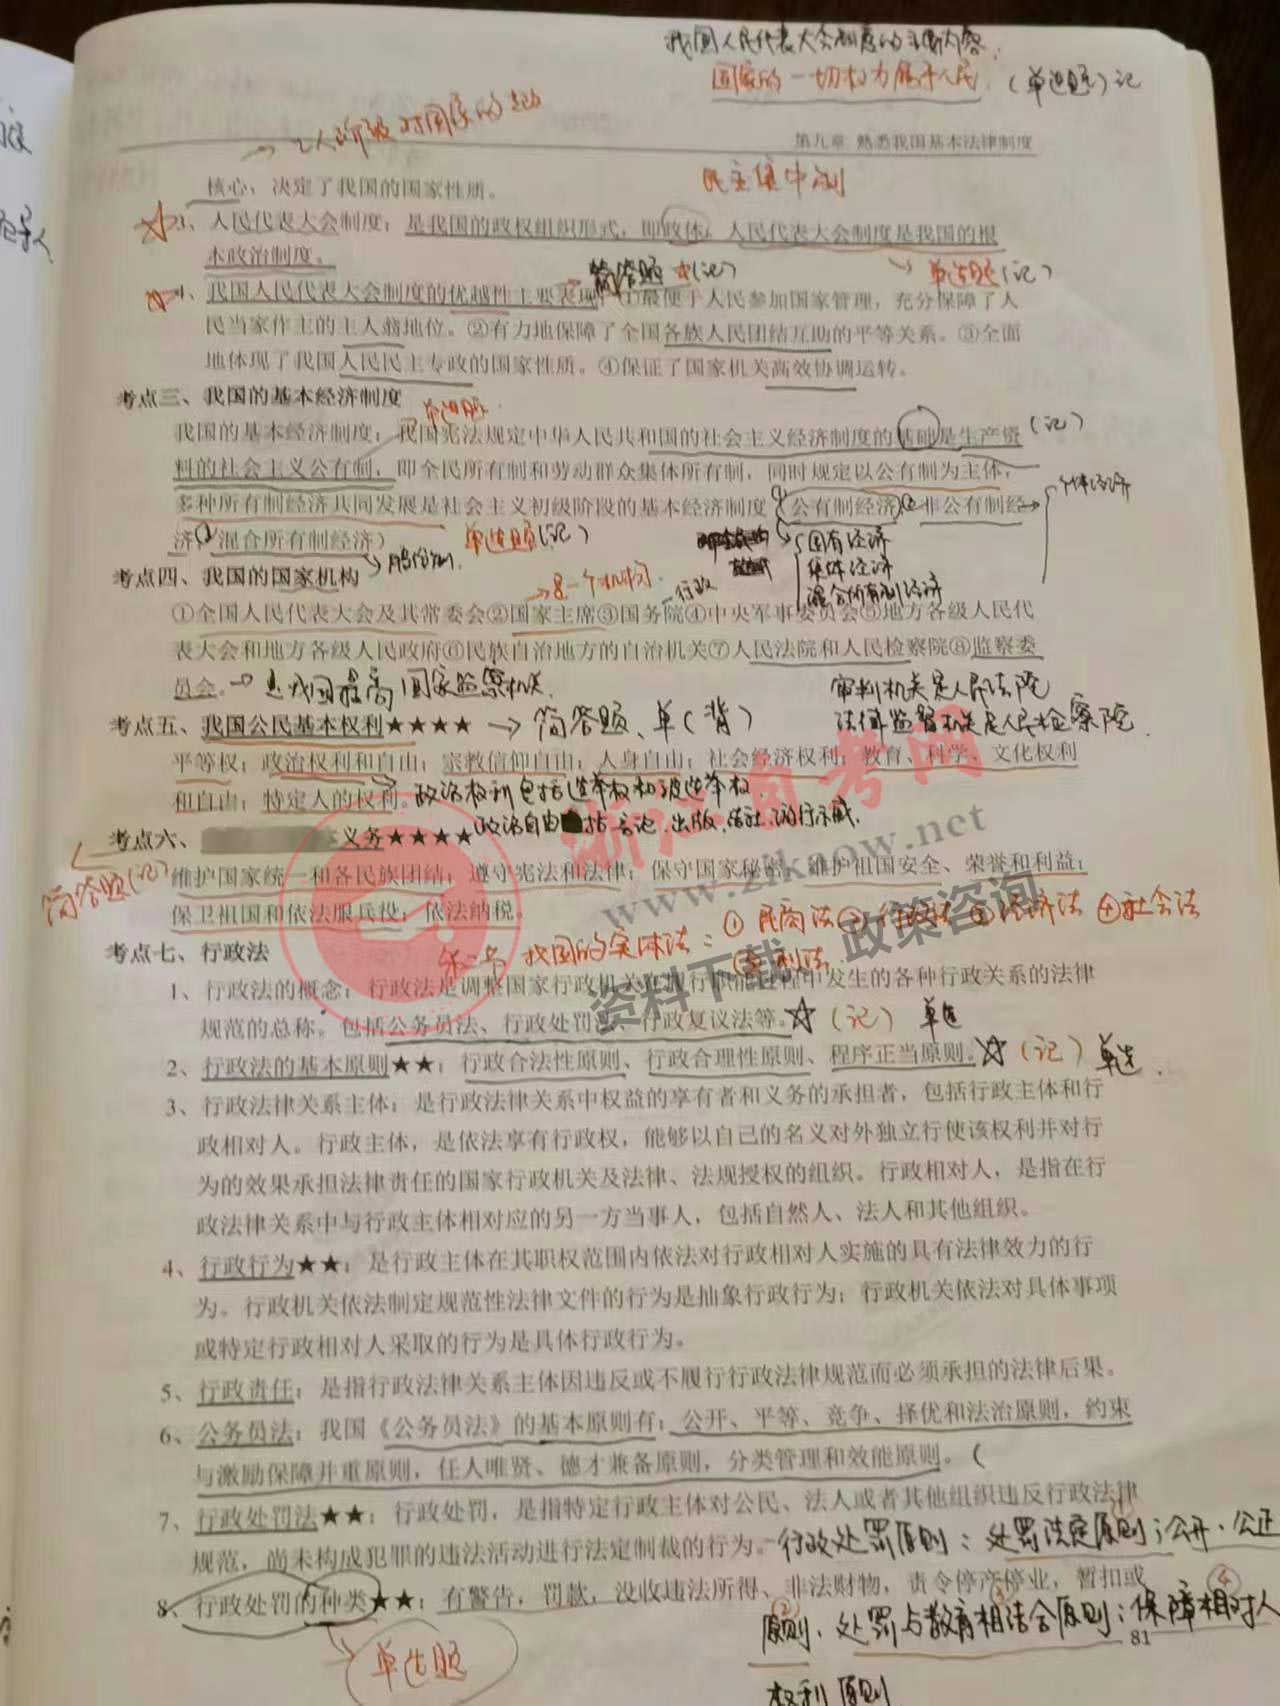 我国人民代表大会制度的主要内容：
国家的一切权力属于人民。（单选题）记
工人阶级对国家的
第九章 熟悉我国基本法律制度
民主集中制
核心，决定了我国的国家性质。
3、人民代表大会制度：是我国的政权组织形式，即政体。人民代表大会制度是我国的根
本政治制度。
简答题（记）
单选题（记）
4、我国人民代表大会制度的优越性主要表现：①最便于人民参加国家管理，充分保障了人
民当家作主的主人翁地位。②有力地保障了全国各族人民团结互助的平等关系。③全面
地体现了我国人民民主专政的国家性质。④保证了国家机关高效协调运转。
考点三、我国的基本经济制度
单选题
我国的基本经济制度：我国宪法规定中华人民共和国的社会主义经济制度的基础是生产资
（记）
料的社会主义公有制，即全民所有制和劳动群众集体所有制，同时规定以公有制为主体，
多种所有制经济共同发展是社会主义初级阶段的基本经济制度（公有制经济、非公有制经
个体经济
济、混合所有制经济）
股份制
单选题（记）
国有经济
集体经济
混合所有制经济
考点四、我国的国家机构
是一个机构
行政
①全国人民代表大会及其常委会②国家主席③国务院④中央军事委员会⑤地方各级人民代
表大会和地方各级人民政府⑥民族自治地方的自治机关⑦人民法院和人民检察院⑧监察委
员会。
是我国最高国家监察机关
审判机关是人民法院
法律监督机关是人民检察院
考点五、我国公民基本权利★★★★
简答题、单（背）
平等权；政治权利和自由；宗教信仰自由；人身自由；社会经济权利；教育、科学、文化权利
和自由；特定人的权利。
政治权利包括选举权和被选举权
考点六、义务★★★★
政治自由指言论、出版、结社、游行示威
简答题（记）
维护国家统一和各民族团结；遵守宪法和法律；保守国家秘密；维护祖国安全、荣誉和利益；
保卫祖国和依法服兵役；依法纳税。
浙江自考网
www.zjkaow.net
资料下载 政策咨询
第二节 我国的实体法：①民商法②行政法③经济法④社会法
⑤刑法
考点七、行政法
1、行政法的概念：行政法是调整国家行政机关在履行职能过程中发生的各种行政关系的法律
规范的总称。包括公务员法、行政处罚法、行政复议法等。☆（记）单选
2、行政法的基本原则★★：行政合法性原则、行政合理性原则、程序正当原则。☆（记）单选
3、行政法律关系主体：是行政法律关系中权益的享有者和义务的承担者，包括行政主体和行
政相对人。行政主体，是依法享有行政权，能够以自己的名义对外独立行使该权利并对行
为的效果承担法律责任的国家行政机关及法律、法规授权的组织。行政相对人，是指在行
政法律关系中与行政主体相对应的另一方当事人，包括自然人、法人和其他组织。
4、行政行为★★：是行政主体在其职权范围内依法对行政相对人实施的具有法律效力的行
为。行政机关依法制定规范性法律文件的行为是抽象行政行为；行政机关依法对具体事项
或特定行政相对人采取的行为是具体行政行为。
5、行政责任：是指行政法律关系主体因违反或不履行行政法律规范而必须承担的法律后果。
6、公务员法：我国《公务员法》的基本原则有：公开、平等、竞争、择优和法治原则，约束
与激励保障并重原则，任人唯贤、德才兼备原则，分类管理和效能原则。（
7、行政处罚法★★：行政处罚，是指特定行政主体对公民、法人或者其他组织违反行政法律
规范，尚未构成犯罪的违法活动进行法定制裁的行为。
行政处罚原则：处罚法定原则；公开、公正
8、行政处罚的种类★★：有警告，罚款，没收违法所得、非法财物，责令停产停业，暂扣或
② ③ ④
原则、处罚与教育相结合原则；保障相对人
81
单选题
权利原则